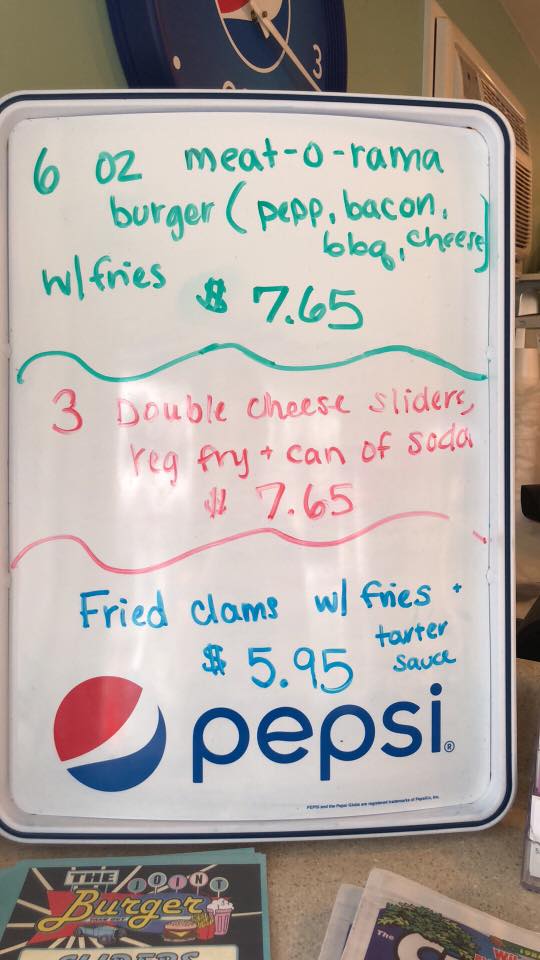 3
6 oz meat-o-rama
burger (pepp, bacon,
bbq, cheese)
w/fries
$ 7.65
3 Double cheese sliders,
reg fry + can of soda
$ 7.65
Fried clams w/ fries +
tarter
sauce
$ 5.95
pepsi®
PEPSI and the Pepsi Globe are registered trademarks of PepsiCo, Inc.
THE JOINT
Burger
SLIDERS
The